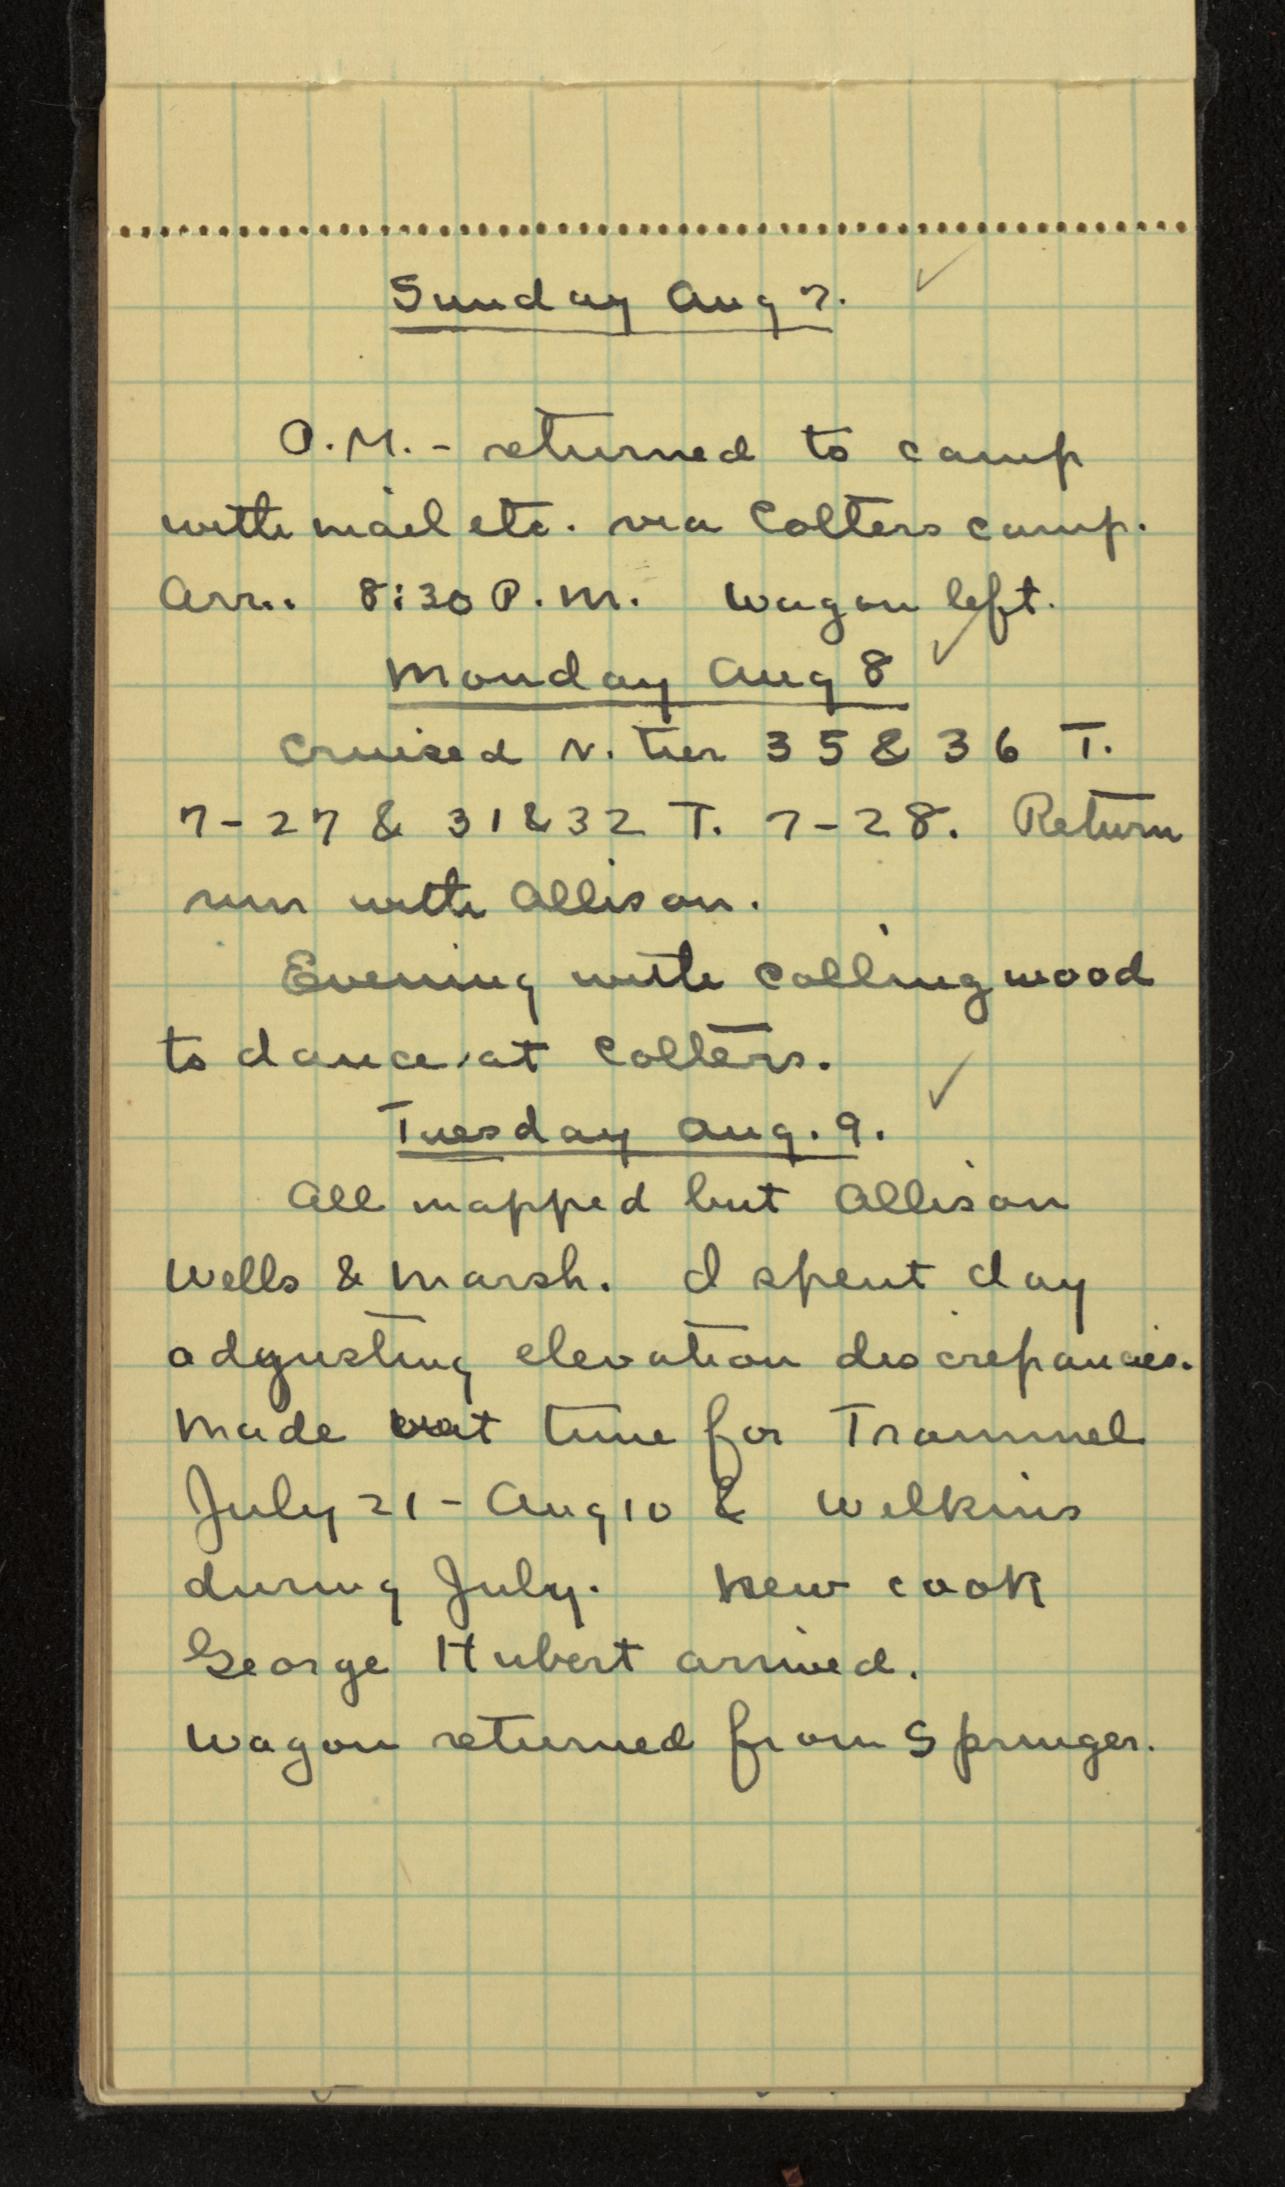 Sunday Aug 7.
P.M. - returned to camp
with mail etc. via Colters camp.
Arr.. 8:30 P.M. Wagon left.
Monday Aug 8
Cruised N. tier 35 & 36 T.
7-27 & 31 & 32 T. 7-28. Return
run with Allison.
Evening with Collingwood
to dance at Colters.
Tuesday Aug. 9.
All mapped but Allison
Wells & Marsh. I spent day
adjusting elevation discrepancies.
Made out time for Trammel
July 21 - Aug 10 & Wilkins
during July. New cook
George Hubert arrived.
Wagon returned from Springer.